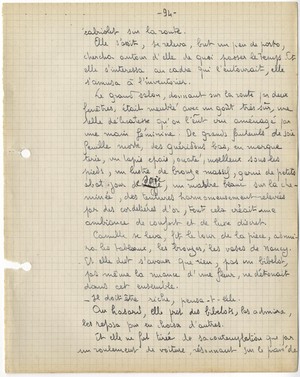 - 94 -
cabriolet sur la route.
Elle s'assit, se releva, but un peu de porto,
chercha autour d'elle de quoi passer le temps. Et
elle s'intéressa au cadre qui l'entourait, elle
s'amusa à l'inventorier.
Le grand salon, donnant sur la route par deux
fenêtres, était meublé avec un goût très sûr, une
telle délicatesse qu'on l'eût cru aménagé par
une main féminine. De grands fauteuils de soie
feuille morte, des guéridons bas, en marque-
terie, un tapis épais, ouaté, moelleux sous les
pieds, un lustre de bronze massif, garni de petits
abat-jour de soie, un marbre blanc sur la che-
minée, des tentures harmonieusement relevées
par des cordelières d'or, tout cela créait une
ambiance de confort et de luxe discret.
Camille se leva, fit le tour de la pièce, admi-
ra les tableaux, les bronzes, les vases de Nancy.
Et elle dut s'avouer que rien, pas un bibelot,
pas même la nuance d'une fleur, ne détonait
dans cet ensemble.
- Il doit être riche, pensa-t-elle.
Au hasard, elle prit des bibelots, les admira,
les reposa, en choisit d'autres.
Et elle ne fut tirée de sa contemplation que par
un roulement de voiture, résonnant sur le pavé de